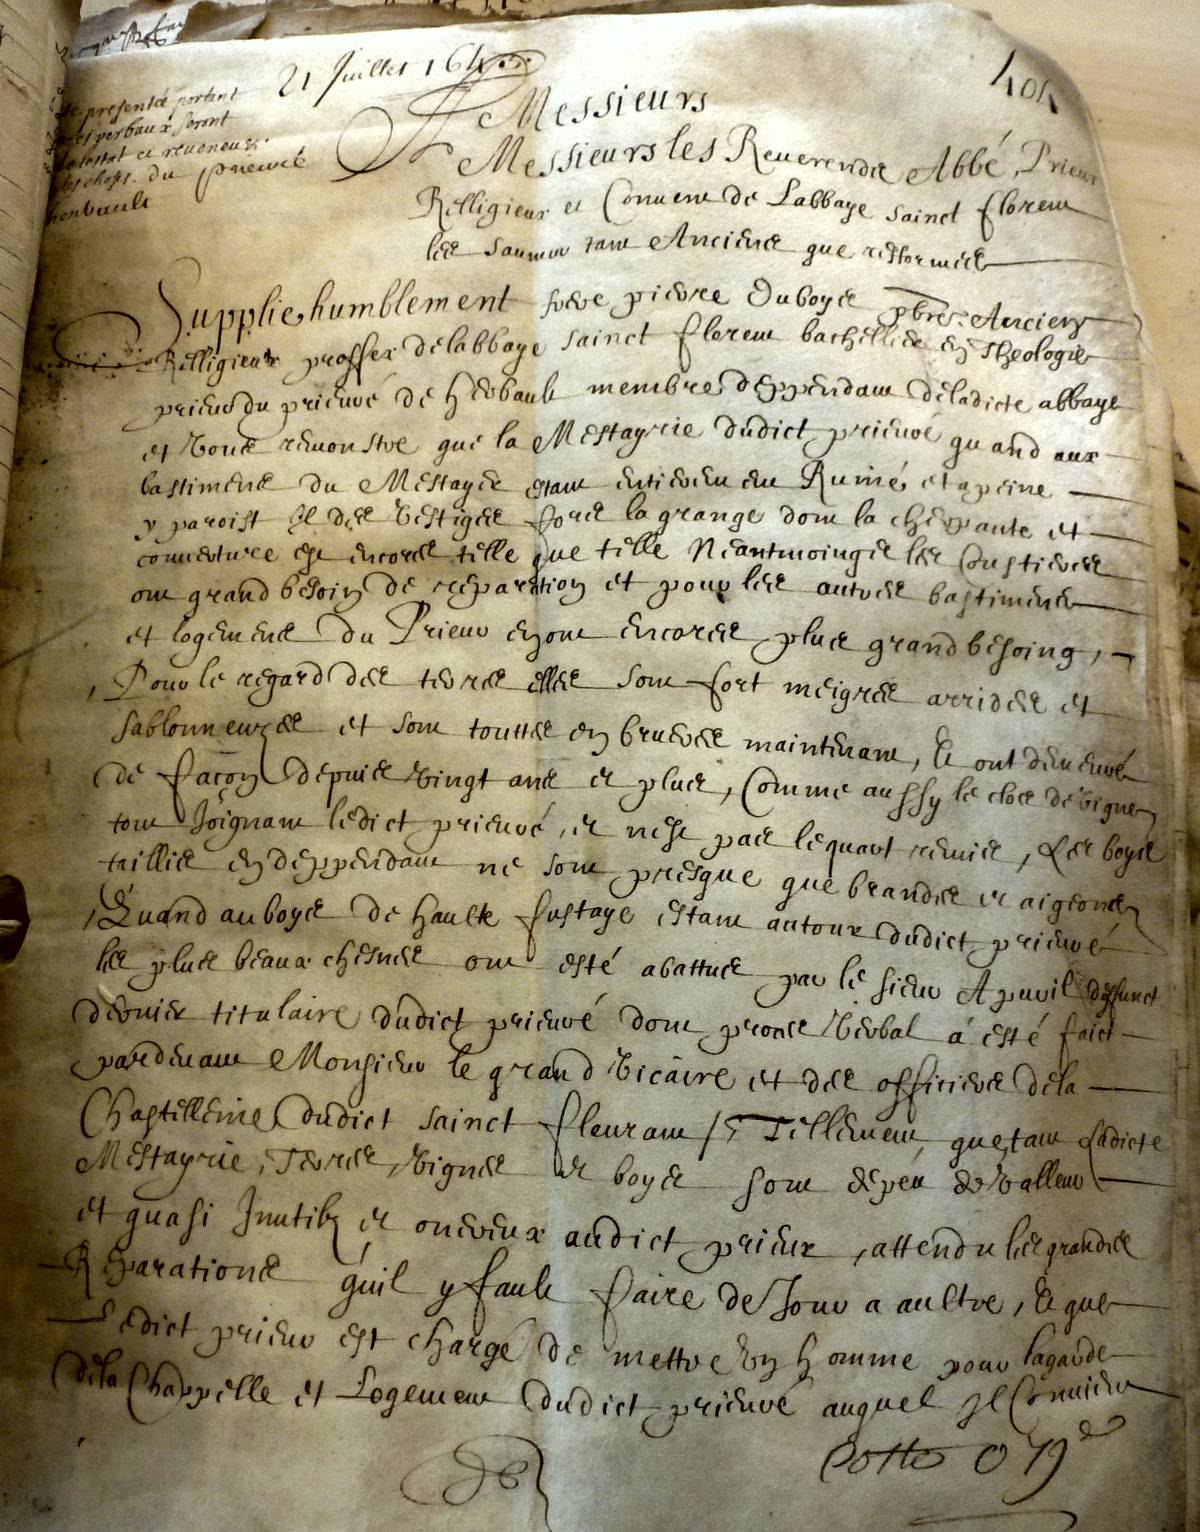 21 Juillet 164
404
presenté portant
verbaux seront
lestat et reveneuz
du prieuré
herbault
A Messieurs
Messieurs les Reverends Abbé, Prieur
Relligieux et Convent de Labbaye sainct florent
lés saumur tant Anciens que refformés
Supplie humblement frere pierre Duboys pbre. Ancien
Relligieux proffex delabbaye sainct florent bachellier en Theologie
prieur du prieuré de herbault membre deppendant deladicte abbaye
et vous remonstre que la Mestayrie dudict prieuré quand aux
bastimens du Mestayer estant entierement Ruiné, et apeine
y paroist Il des vestiges fors la grange dont la charpante et
couverture est encores telle que telle Neantmoinges les Coustieres
ont grand besoin de reparation et pour les autres bastimens
et logemens du Prieur en ont encores plus grand besoing,
Pour le regard des terres elles sont fort meigres arrides et
sablonneuzes et sont touttes en brueres maintenant, & ont demeuré
de façon depuis vingt ans et plus, Comme aussy le clos de vigne
tout Joignant ledict prieuré, et nest pas lequart remis, Les boys
taillis en deppendant ne sont presque que brandes et aigeons
Quand au boys de haulte fustaye estant autour dudict prieuré
les plus beaux chesnes ont esté abattus par le sieur Apuril deffunct
dernier titulaire dudict prieuré dont proces verbal á esté faict
pardevant Monsieur le grand vicaire et des officiers dela
Chastellenie dudict sainct fleurant / Tellement que, tant ladicte
Mestayrie, Terres, vignes et boys sont depeu de valleur
et quasi Inutilz et onereux audict prieur, attendu les grandes
Reparations quil y fault faire de Jour a aultre, & que
Ledict prieur est chargé de mettre un homme pour lagarde
dela Chappelle et Logement dudict prieuré auquel Il Convient
Cotté 079